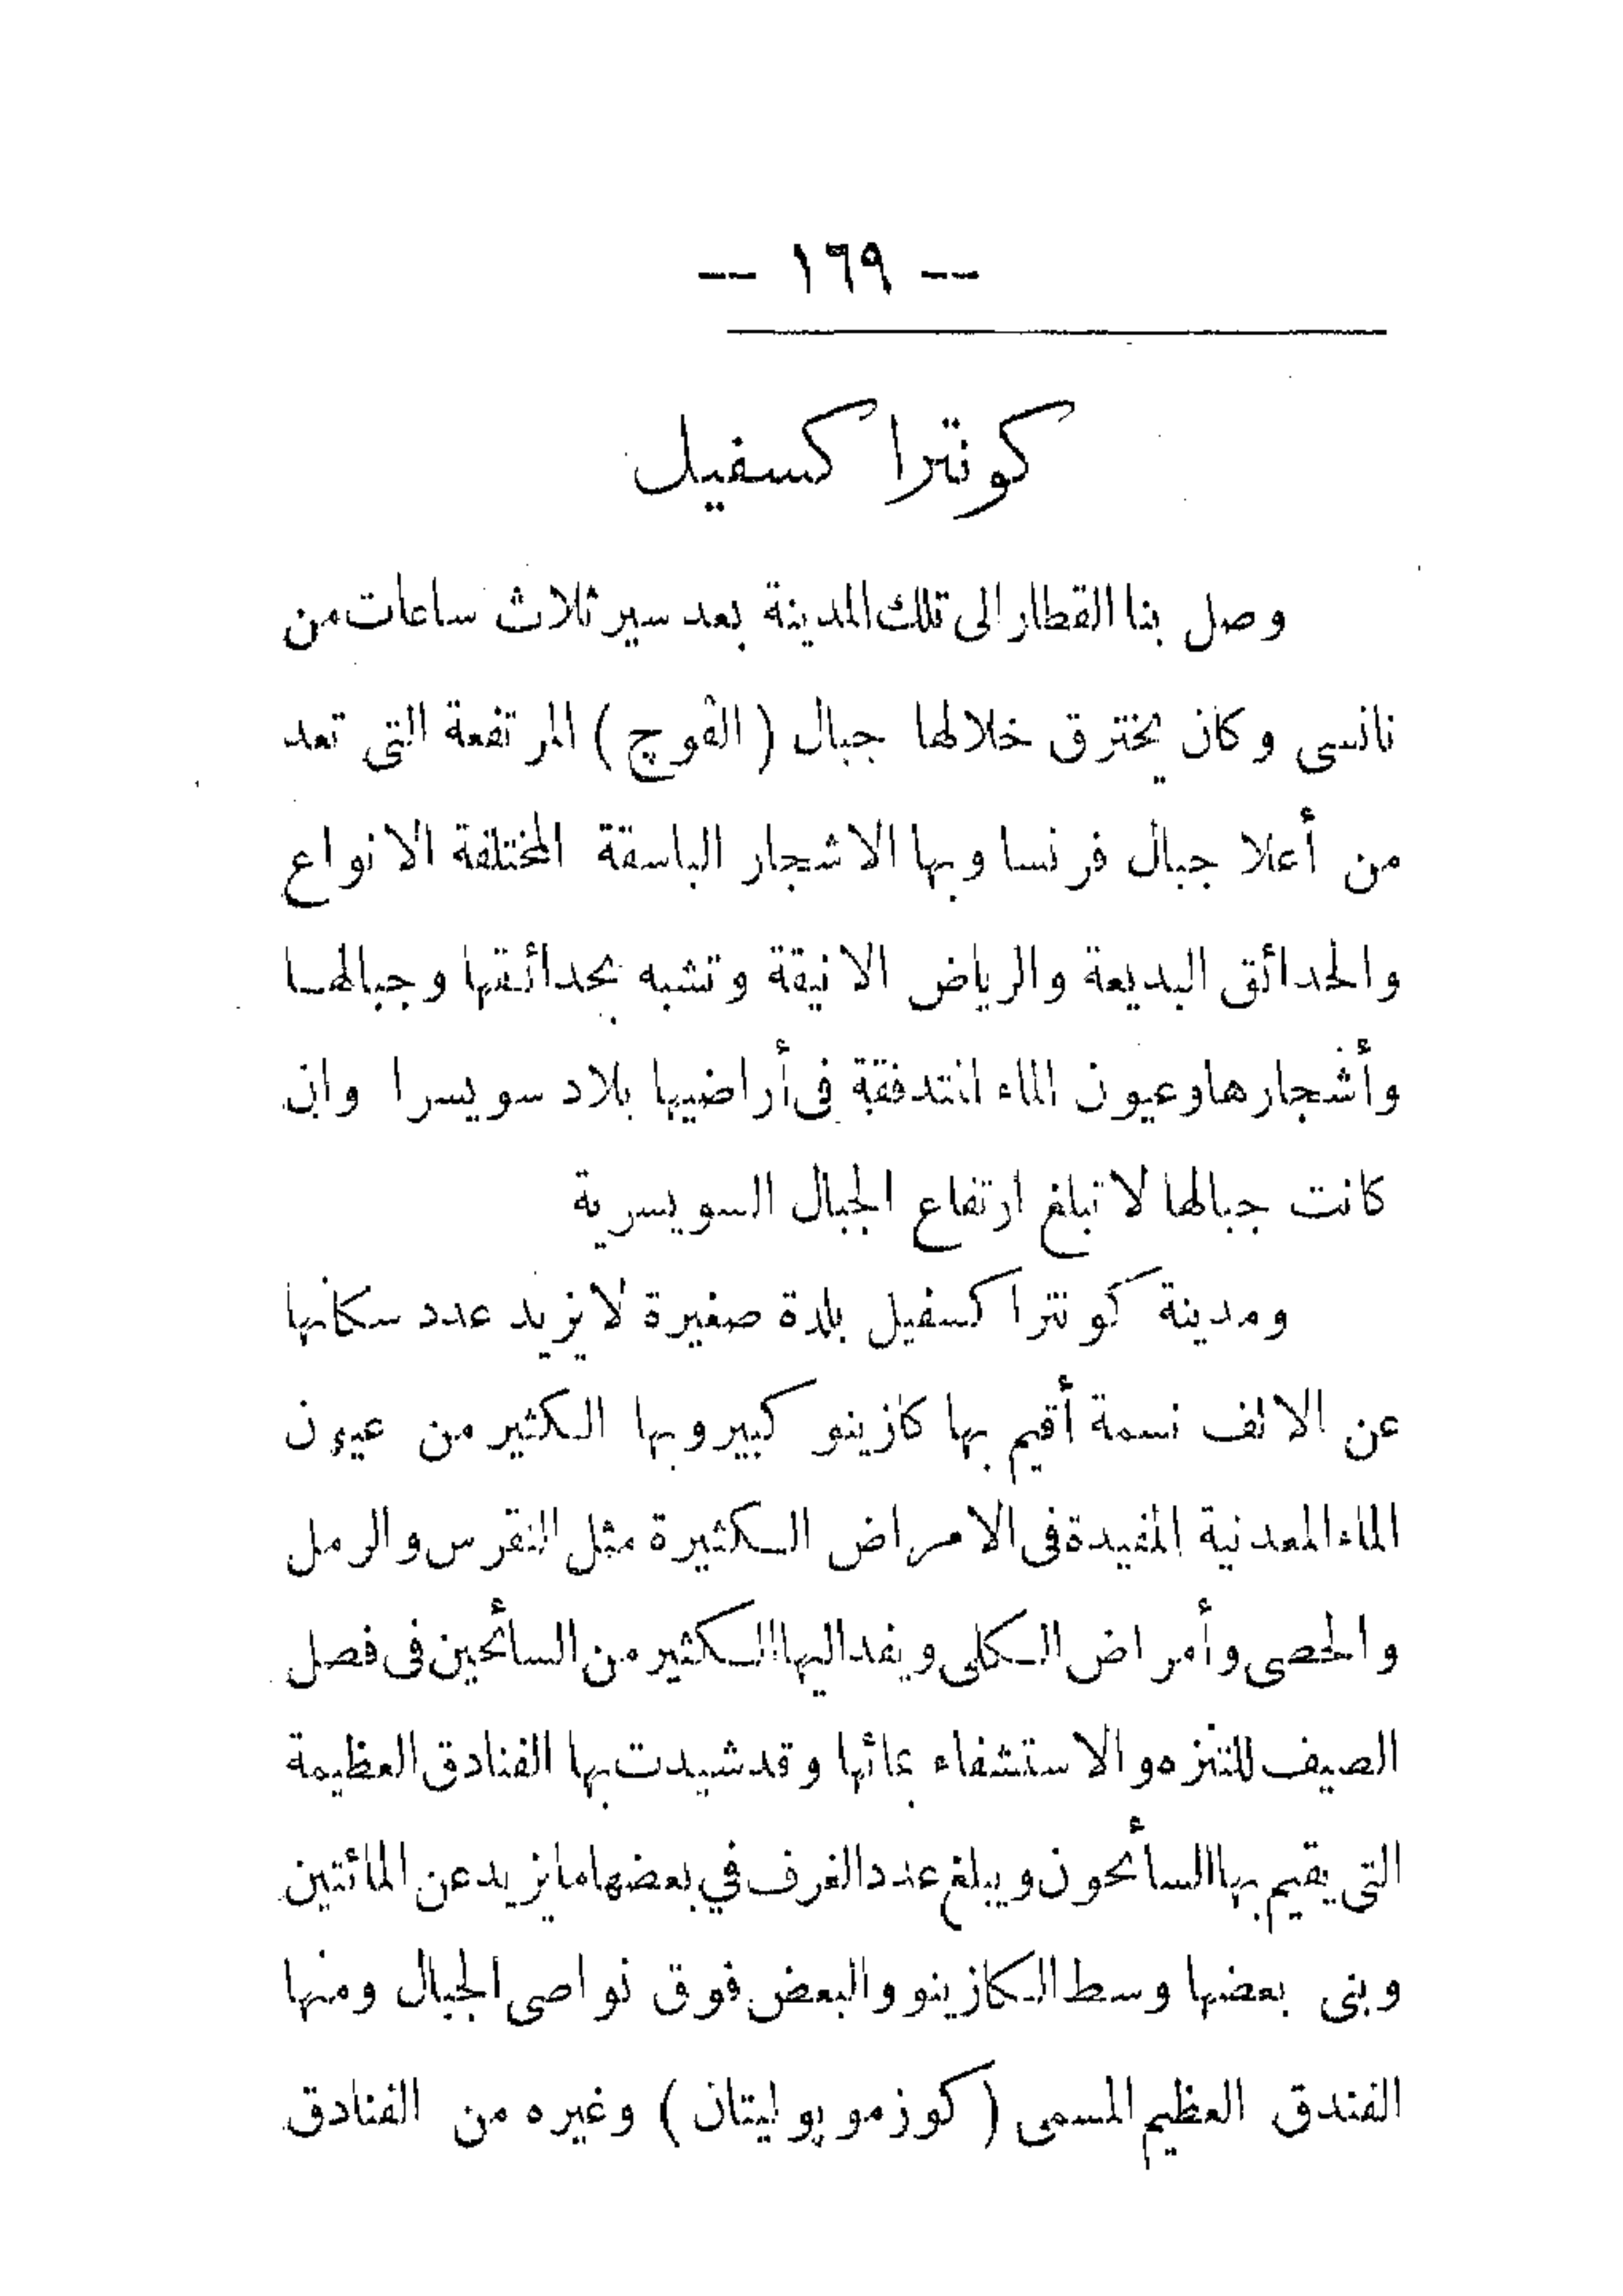 — ١٦٩ —
كونتراكسفيل
وصل بنا القطار الى تلك المدينة بعد سير ثلاث ساعات من
نانسى وكان يخترق خلالها جبال ( الڤوچ ) المرتفعة التى تعد
من أعلا جبال فرنسا وبها الاشجار الباسقة المختلفة الانواع
والحدائق البديعة والرياض الانيقة وتشبه بحدائقها وجبالها
وأشجارها وعيون الماء المتدفقة فى أراضيها بلاد سويسرا وان
كانت جبالها لا تبلغ ارتفاع الجبال السويسرية
ومدينة كونتراكسفيل بلدة صغيرة لا يزيد عدد سكانها
عن الالف نسمة أقيم بها كازينو كبير وبها الكثير من عيون
الماء المعدنية المفيدة فى الامراض الكثيرة مثل النقرس والرمل
والحصى وأمراض الكلى ويفد اليها الكثير من السائحين فى فصل
الصيف للتنزه والاستشفاء بمائها وقد شيدت بها الفنادق العظيمة
التى يقيم بها السائحون ويبلغ عدد الغرف في بعضها ما يزيد عن المائتين
وبنى بعضها وسط الكازينو والبعض فوق نواصى الجبال ومنها
الفندق العظيم المسمى ( كوزموپوليتان ) وغيره من الفنادق